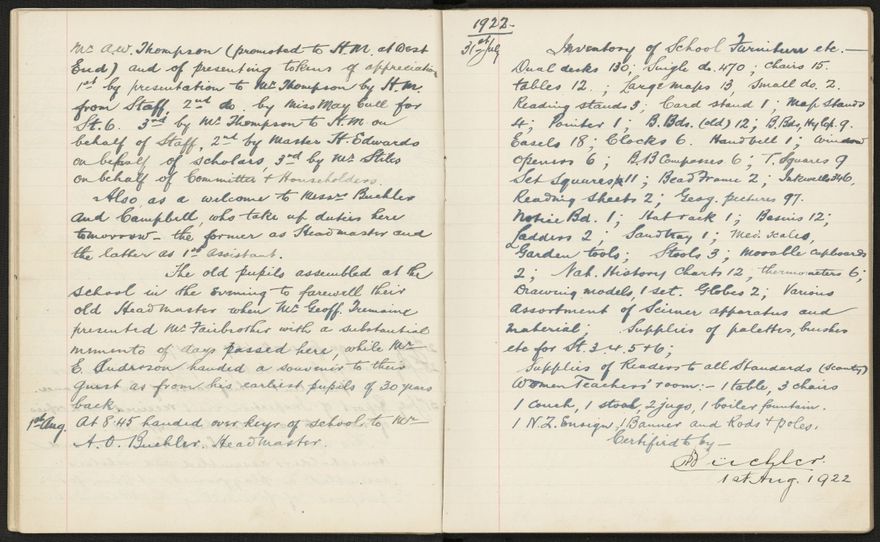 Mr A.W. Thompson (promoted to H.M. at West
End) and of presenting tokens of appreciation
1st by presentation to Mr Thompson by H.M.
from Staff, 2nd do. by Miss May Cull for
St. 6. 3rd by Mr Thompson to H.M on
behalf of Staff, 2nd by Master H. Edwards
on behalf of scholars, 3rd by Mr Stiles
on behalf of Committee & Householders.
Also, as a welcome to Messrs Buchler
and Campbell, who take up duties here
tomorrow – the former as Headmaster and
the latter as 1st assistant.
The old pupils assembled at the
school in the evening to farewell their
old Headmaster when Mr Geoff. Tremaine
presented Mr Fairbrother with a substantial
memento of days passed here, while Mr
E. Anderson handed a souvenir to their
guest as from his earliest pupils of 30 years
back.
1st Aug. At 8.45 handed over keys of school to Mr
A. O. Buchler. Headmaster.
1922.
31st July Inventory of School Furniture etc. —
Dual desks 130; Single do. 470; Chairs 15.
tables 12.; Large maps 13, Small do. 2.
Reading stands 3; Card stand 1; Map Stands
4; Pointer 1; B.Bds. (old) 12; B.Bds, Hylop. 9.
Easels 18; Clocks 6. Handbell 1; Window
openers 6; B.B Compasses 6; T. Squares 9
Set Squares 11; Bead Frame 2; Inkwells 346,
Reading Sheets 2; Geog. pictures 97.
Notice Bd. 1; Hat rack 1; Basins 12;
Ladders 2; Sandtray 1; Med. scales,
Garden tools; Stools 3; Movable cupboards
2; Nat. History Charts 12, thermometers 6;
Drawing models, 1 set. Globes 2; Various
assortment of Science apparatus and
material; Supplies of palettes, brushes
etc for St. 3. 4. 5 & 6;
Supplies of Readers to all Standards (scanty)
Women Teachers' room:– 1 table, 3 chairs
1 couch, 1 stool, 2 jugs, 1 boiler fountain.
1 N.Z. Ensign, 1 Banner and Rods & poles.
Certified to by –
A O Buchler.
1st Aug. 1922